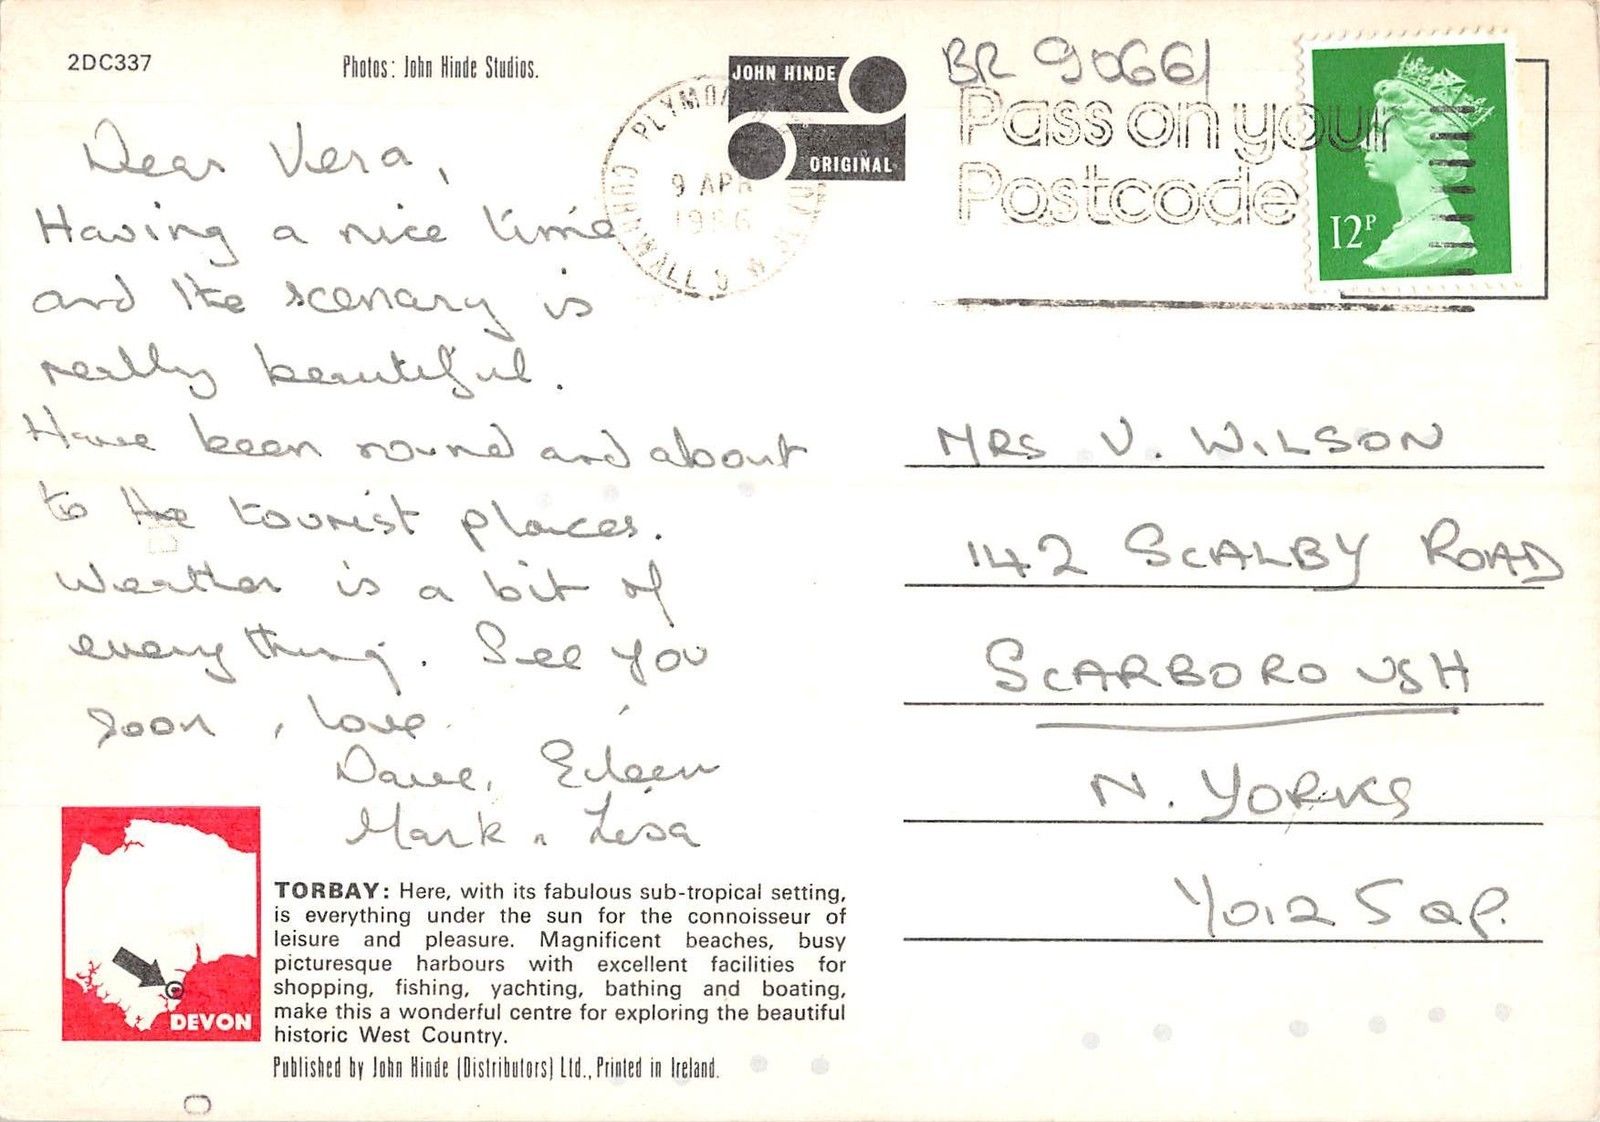 2DC337
Photos: John Hinde Studios.
JOHN HINDE
ORIGINAL
BR 90661
PLYMOU
CORNWALL
9 APR
1986
Pass on your
Postcode
12P
Dear Vera,
Having a nice time
and the scenary is
really beautiful.
Have been round and about
to the tourist places.
Weather is a bit of
everything. See you
soon, love
Dave, Eileen
Mark & Lisa
MRS V. WILSON
142 SCALBY ROAD
SCARBOROUGH
N. YORKS
YO12 5QP.
DEVON
TORBAY: Here, with its fabulous sub-tropical setting,
is everything under the sun for the connoisseur of
leisure and pleasure. Magnificent beaches, busy
picturesque harbours with excellent facilities for
shopping, fishing, yachting, bathing and boating,
make this a wonderful centre for exploring the beautiful
historic West Country.
Published by John Hinde (Distributors) Ltd., Printed in Ireland.